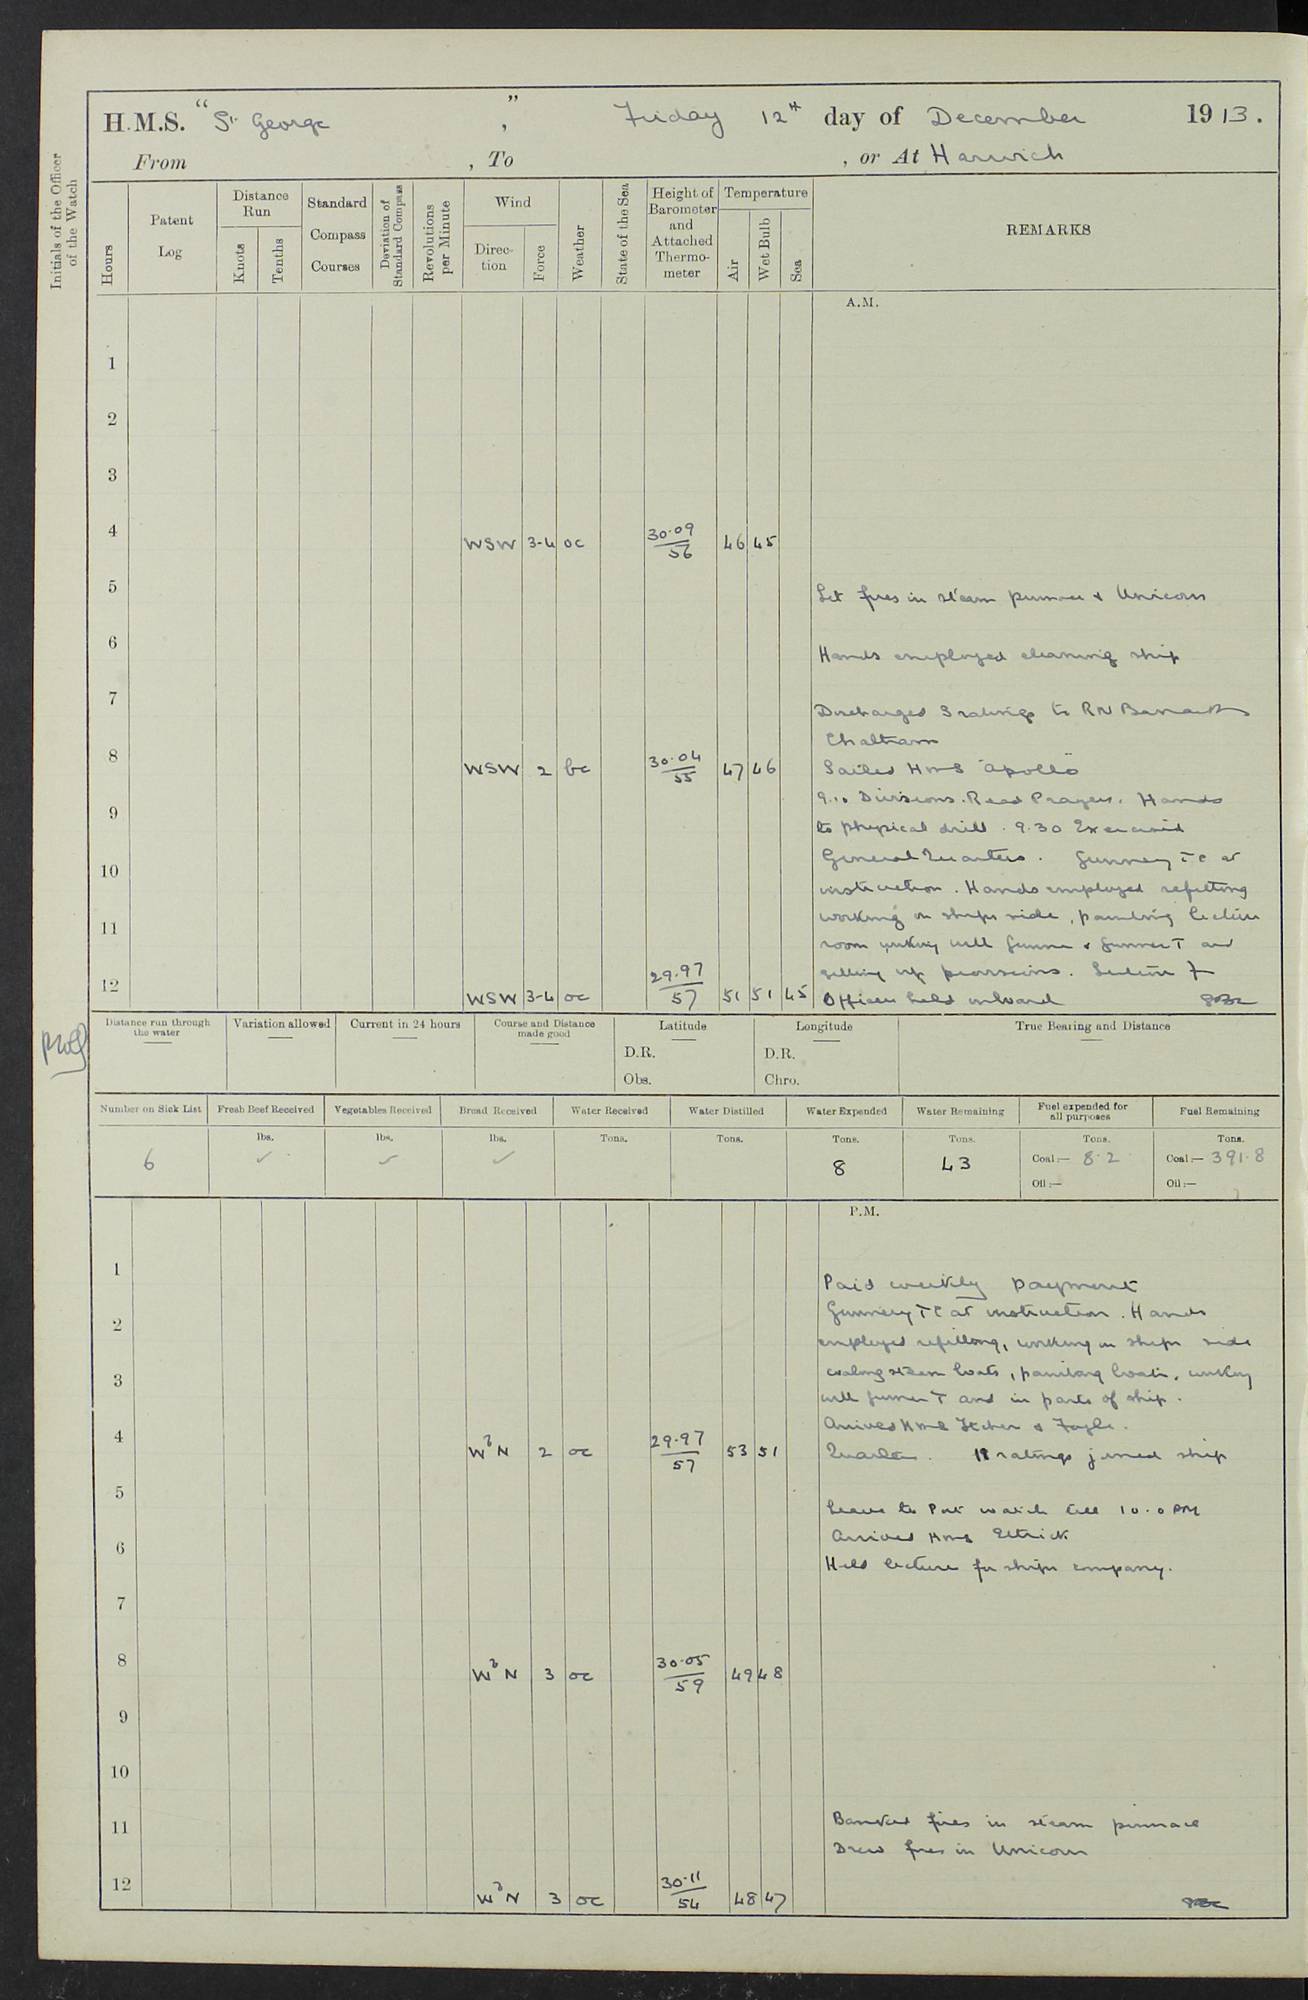 H.M.S. "St. George", Friday 12th day of December 1913.
From , To , or At Harwich
Initials of the Officer of the Watch
Hours
Patent Log
Distance Run
Knots
Tenths
Standard Compass Courses
Deviation of Standard Compass
Revolutions per Minute
Wind
Direction
Force
Weather
State of the Sea
Height of Barometer and Attached Thermometer
Temperature
Air
Wet Bulb
Sea
REMARKS
A.M.
1
2
3
4 WSW 3-4 oc 30.09/56 46 45
5 Let fires in steam pinnace & Unicorn
6 Hands employed cleaning ship
7 Discharged 3 ratings to RN Barracks
Chatham
8 WSW 2 bc 30.04/55 47 46 Sailed HMS "Apollo"
9.10 Divisions. Read Prayers. Hands
9 to physical drill. 9.30 Exercised
General Quarters. Gunnery TC at
10 instruction. Hands employed refitting
working on ships side, painting lecture
11 room working with Gunner & Gunner T and
getting up provisions. Lecture for
12 WSW 3-4 oc 29.97/57 51 51 45 Officers held onboard
Distance run through the water
Variation allowed
Current in 24 hours
Course and Distance made good
Latitude
D.R.
Obs.
Longitude
D.R.
Chro.
True Bearing and Distance
Number on Sick List 6
Fresh Beef Received lbs. ✓
Vegetables Received lbs. ✓
Bread Received lbs. ✓
Water Received Tons.
Water Distilled Tons.
Water Expended Tons. 8
Water Remaining Tons. 43
Fuel expended for all purposes Tons. Coal:— 8.2 Oil:—
Fuel Remaining Tons. Coal:— 391.8 Oil:—
P.M.
1 Paid weekly payment
2 Gunnery TC at instruction. Hands
employed refitting, working on ships side
3 coaling steam boats, painting boats, working
with Gunner T and in parts of ship.
Arrived HMS Itchen & Foyle.
4 WbN 2 oc 29.97/57 53 51 Quarters. 18 ratings joined ship
5 Leave to Port watch till 10.0 PM
6 Arrived HMS Ettrick
Held lecture for ships company.
7
8 WbN 3 oc 30.05/59 49 48
9
10
11 Banked fires in steam pinnace
Drew fires in Unicorn
12 WbN 3 oc 30.11/54 48 47